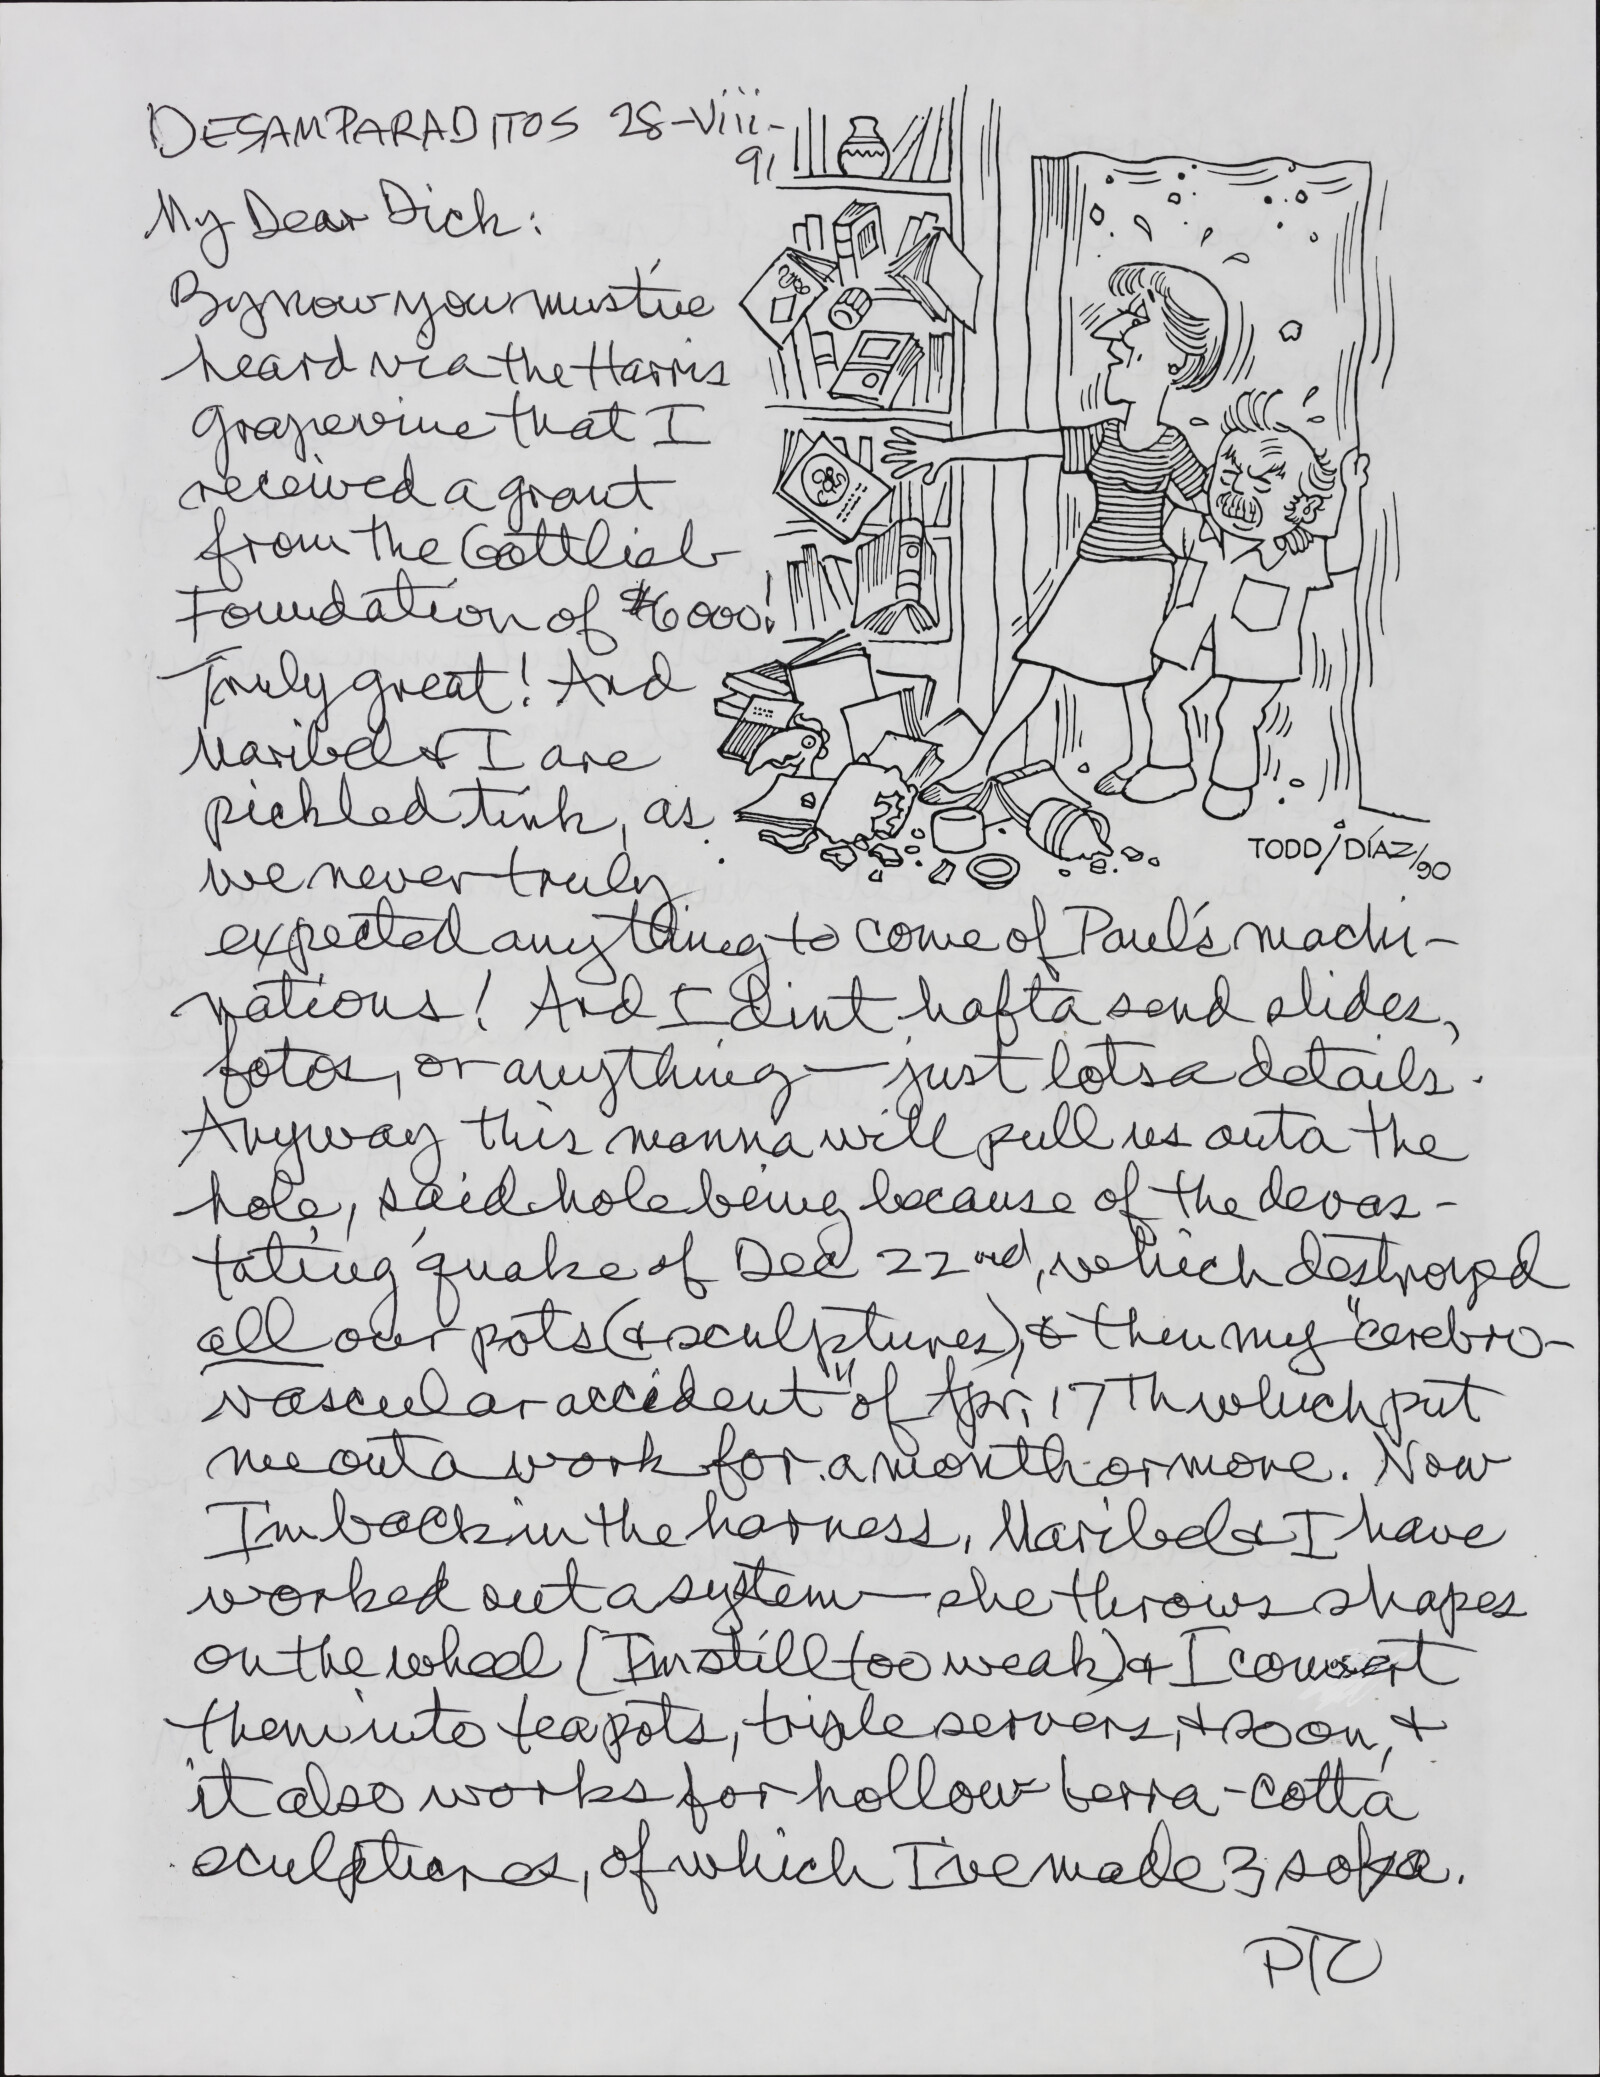 DESAMPARADITOS 28-Viii-
91
My Dear Dick:
By now you must've
heard via the Harris
Grapevine that I
received a grant
from the Gottlieb
Foundation of $6000!
Truly great! And
Maribel & I are
pickled tink, as
we never truly
TODD/DÍAZ/90
expected anything to come of Paul's machi-
nations! And I dint hafta send slides,
fotos, or anything—just lotsa details.
Anyway this manna will pull us outa the
hole, said hole being because of the devas-
tating quake of Dec 22nd, which destroyed
all our pots (& sculptures), & then my "cerebro-
vascular accident" of Apr. 17Th which put
me outa work for a month or more. Now
I'm back in the harness, Maribel & I have
worked out a system—she throws shapes
on the wheel (I'm still too weak) & I convert
them into teapots, triple servers, & so on, &
it also works for hollow terra-cotta
sculptures, of which I've made 3 sofa.
PTO